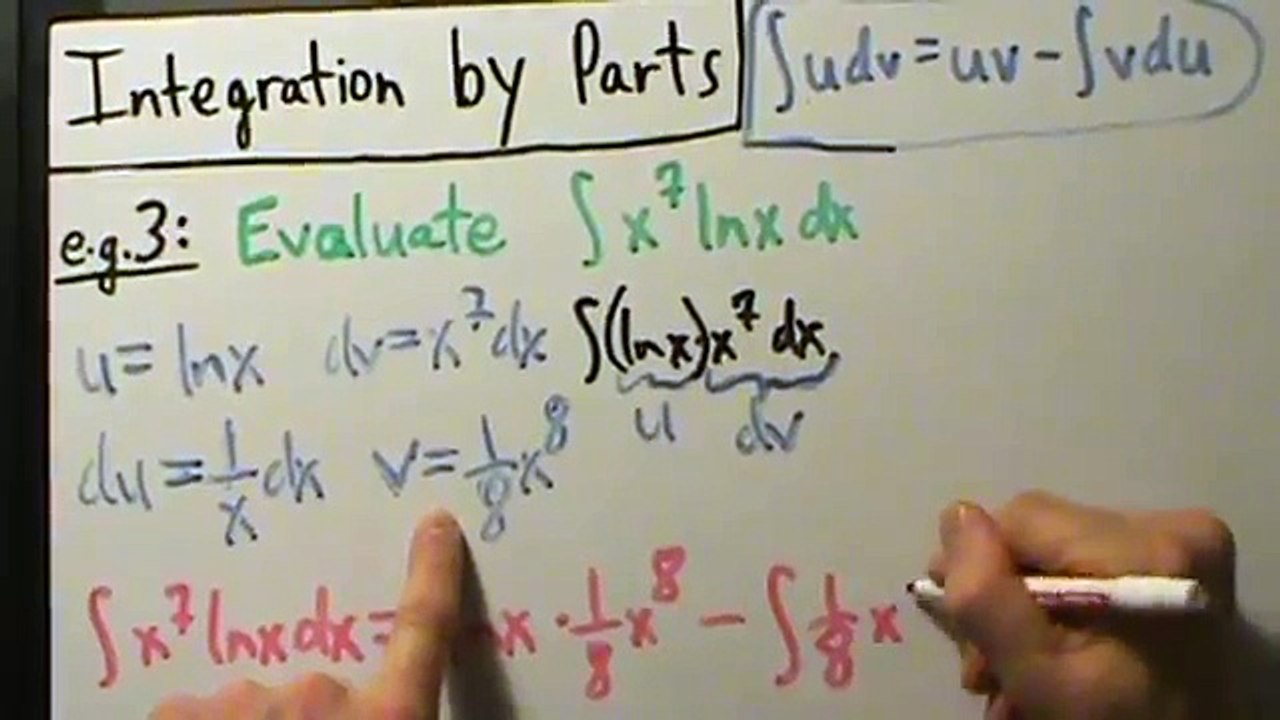 Integration by Parts ∫udv=uv-∫vdu
e.g.3: Evaluate ∫x⁷lnxdx
u=lnx dv=x⁷dx ∫(lnx)x⁷dx
u dv
du=1/x dx v=1/8 x⁸
∫x⁷lnxdx= x·1/8 x⁸ - ∫1/8 x